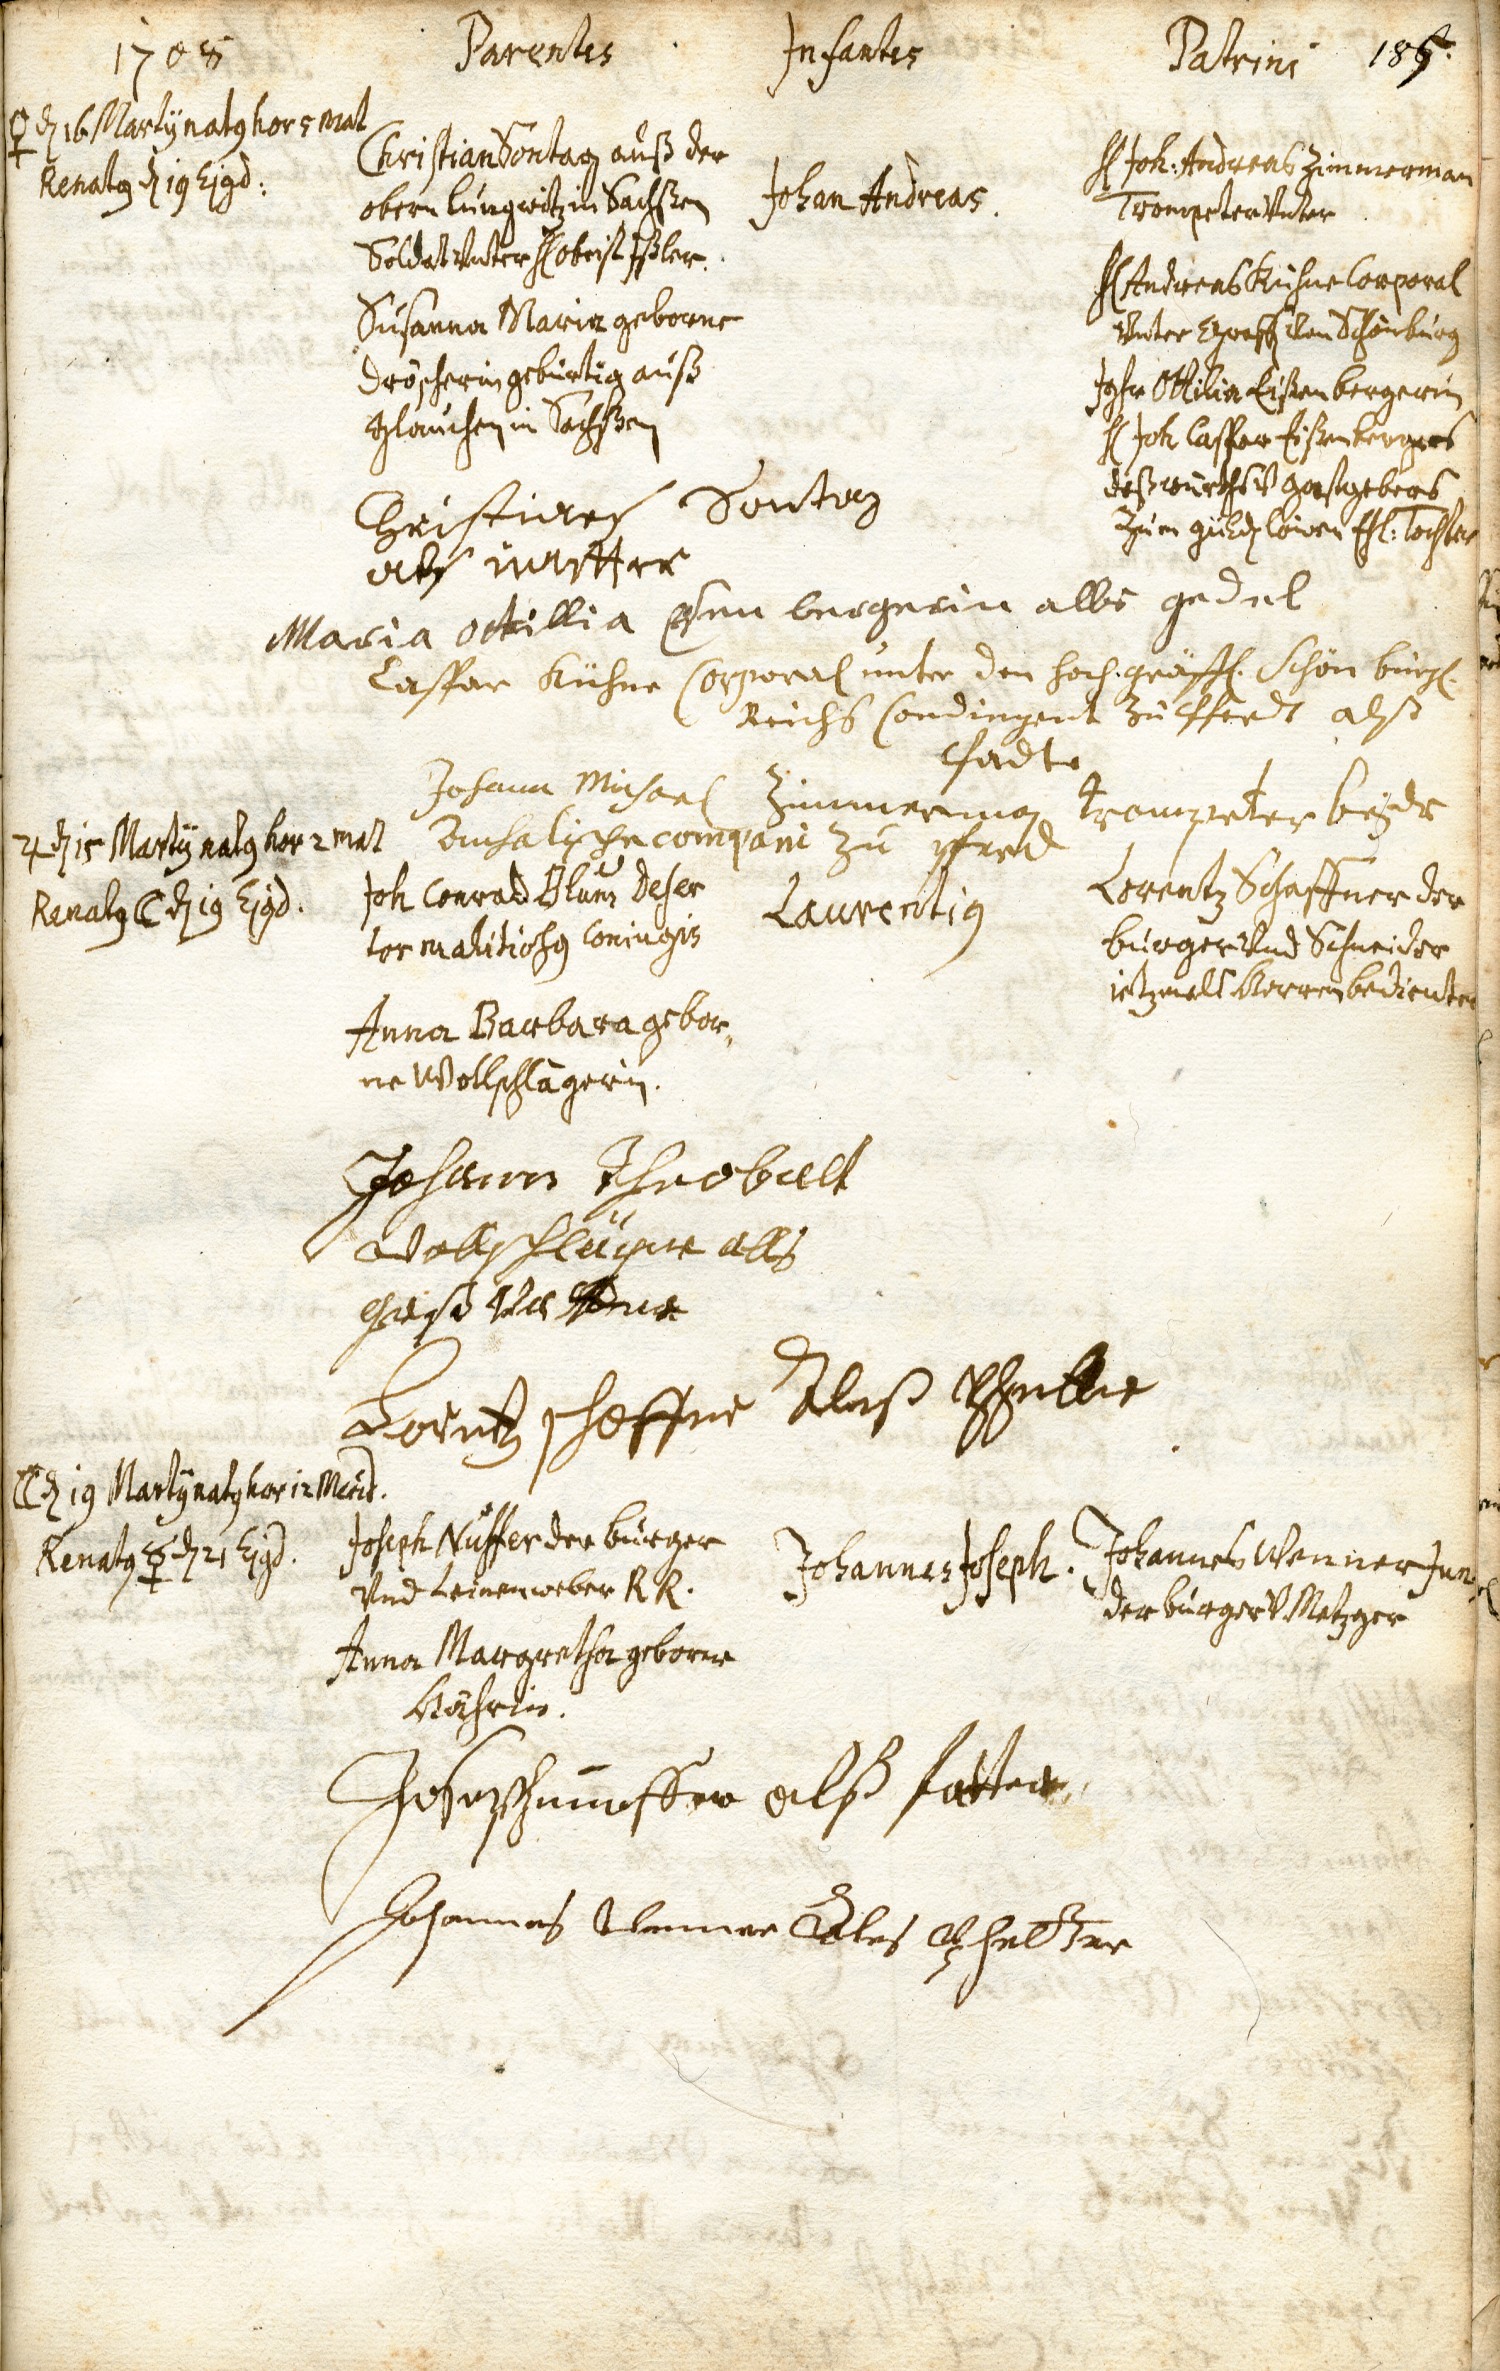 1708 Parentes Infantes Patrini 185.
♀ d 16 Martij natq hor 5 mat
Renatq d 19 Ejqd:
Christian Sontag auß der
obern Lungwitz in Sachßen
Soldat unter H Obrist Ißler.
Susanna Maria geborne
Dröscherin gebürtig auß
Glauchen in Sachßen
Johan Andreas.
H Joh: Andreas Zimmerman
Trompeter Unter
H Andreas Kühne Corporal
Unter Graff Von Schönburg
Jgfr Ottilia Eißenbergerin
H Joh Caspar Eißenbergers
deß würths V gastgebers
Zum güld Löwen Ehl: Tochter
Christian Sontag
als vatter
Maria Ottillia Eisenbergerin alls gedel
Caspar Kühne Corporal unter den hoch.gräffl. Schönburgl.
Reichs Condingent zu Pferdt alß
Johann Michael Zimmerman Trompeter bey der
compani zu pferd
♃ d 15 Martij natq hor 2 mat
Renatq ☾ d 19 Ejqd.
Joh Conrad Blum deser
tor malitiosq Coniugis
Anna Barbara gebor„
ne Wollschlägerin.
Laurentiq
Lorentz Schaffner der
burger Und Schneider
ietzmals Herrenbedienter
Johann Theobalt
Wollschläger alls
groß Vatter
Lorentz schaffner alß Pfetter
☾ d 19 Martij natq hor 12 Merid.
Renatq ☿ d 21 Ejqd.
Joseph Nuffer der burger
Und Leinenweber R R.
Anna Margretha geborne
Johannes Joseph.
Johannes Wenner Jun
der burger V. Metzger
Joseph nuffer alß fatter
Johannes Wenner Als Pfetter